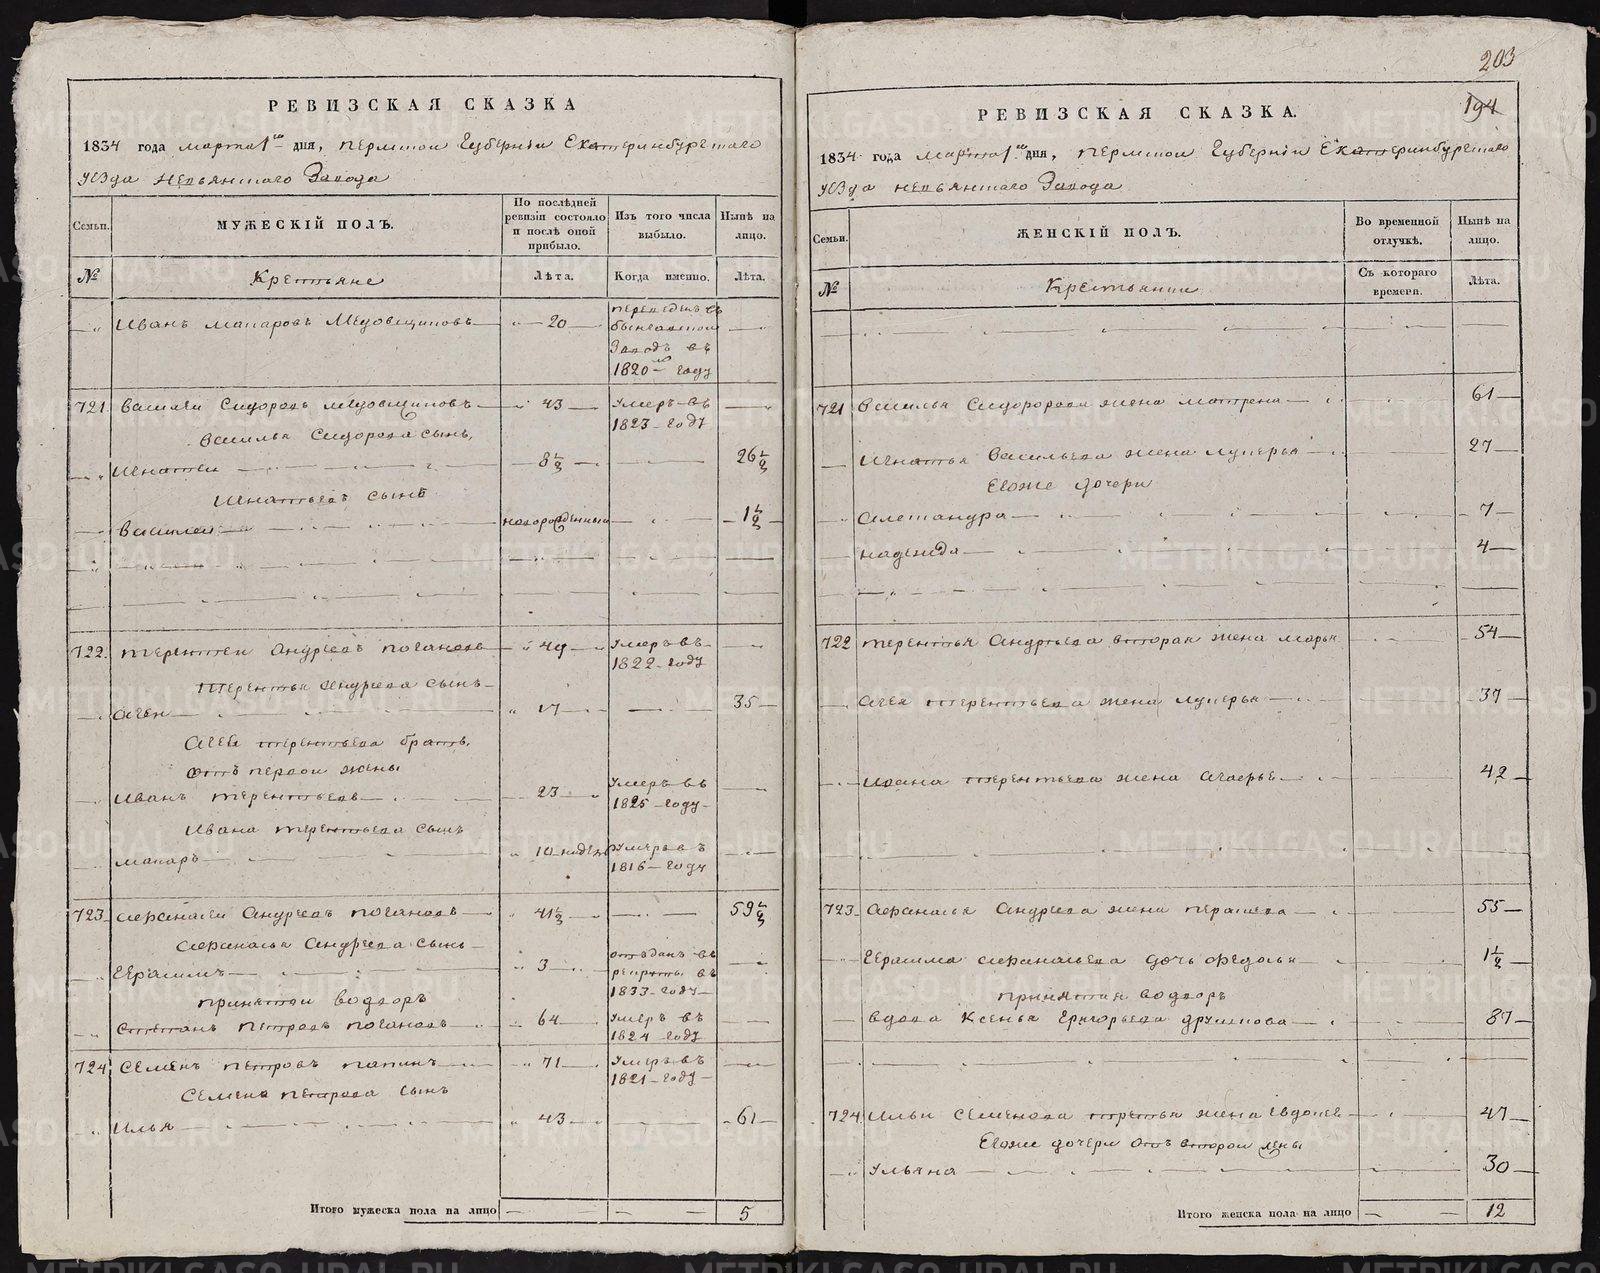 РЕВИЗСКАЯ СКАЗКА
1834 года марта 1го дня, Пермской Губернии Екатеринбургскаго
уезда Невьянскаго Завода
Семьи.
МУЖЕСКІЙ ПОЛЪ.
По послѣдней ревизіи состояло и послѣ оной прибыло.
Изъ того числа выбыло.
Нынѣ на лицо.
№
Крестьяне
Лѣта.
Когда именно.
Лѣта.
Иванъ Макаровъ Медовщиковъ 20
переведенъ въ
Заводъ въ
1820 году
721 Василеи Сидоровъ Медовщиковъ 43 умеръ въ
1823 году
Василья Сидорова сынъ
Игнатеи 8½ 26½
Игнатьевъ сынъ
Василеи новорожденный 1½
722 Терентеи Андреевъ Погановъ 49 умеръ въ
1822 году
Терентья Андреева сынъ
Агеи 17 35
Агея Терентьева братъ
отъ первои жены
Иванъ Терентьевъ 23 умеръ въ
1825 году
Ивана Терентьева сынъ
Макаръ 10 недель умеръ въ
1816 году
723 Афанасеи Андреевъ Погановъ 41½ 59½
Афанасья Андреева сынъ
Герасимъ 3 отданъ въ
рекруты въ
1833 году
принятои водворъ
Степанъ Петровъ Погановъ 64 умеръ въ
1824 году
724 Семенъ Петровъ Папинъ 71 умеръ въ
1821 году
Семена Петрова сынъ
Илья 43 61
Итого мужеска пола на лицо 5
203
194
РЕВИЗСКАЯ СКАЗКА.
1834 года марта 1го дня, Пермской Губернии Екатеринбургскаго
уезда Невьянскаго Завода
Семьи.
ЖЕНСКІЙ ПОЛЪ.
Во временной отлучкѣ.
Нынѣ на лицо.
№
Крестьянки
Съ котораго времени.
Лѣта.
721 Василья Сидорова жена Матрена 61
Игнатья Васильева жена Лукерья 27
Егоже дочери
Александра 7
Надежда 4
722 Терентья Андреева вторая жена Марья 54
Агея Терентьева жена Лукерья 37
Ивана Терентьева жена 42
723 Афанасья Андреева жена 55
Герасима Афанасьева дочь Федосья 1½
принятая водворъ
вдова Ксенья Григорьева 87
724 Ильи Семенова третья жена 47
Егоже дочери отъ второи жены
Ульяна 30
Итого женска пола на лицо 12
METRIKI.GASO-URAL.RU